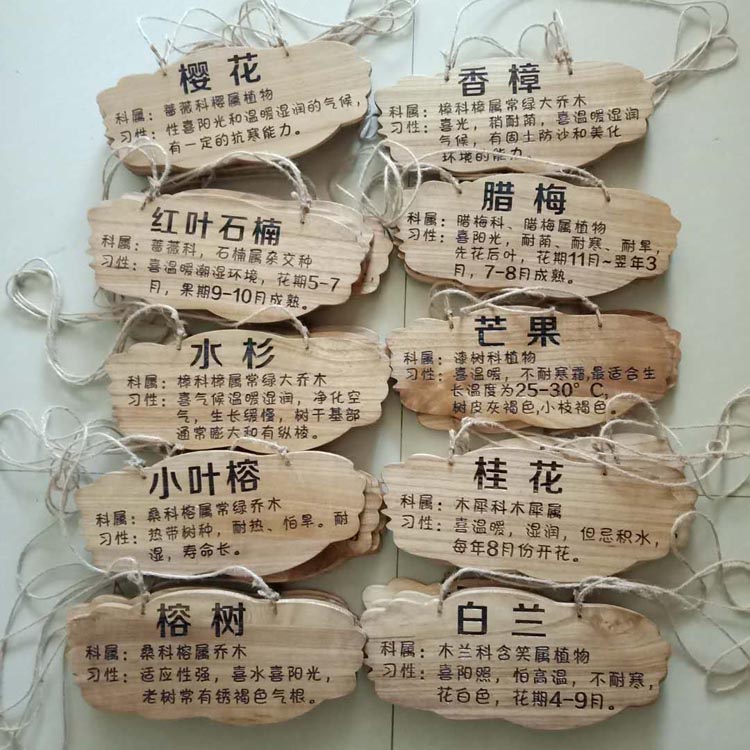 樱花
科属：蔷薇科樱属植物
习性：性喜阳光和温暖湿润的气候，
有一定的抗寒能力。
香樟
科属：樟科樟属常绿大乔木
习性：喜光，稍耐荫，喜温暖湿润
气候，有固土防沙和美化
环境的能力。
红叶石楠
科属：蔷薇科，石楠属杂交种
习性：喜温暖潮湿环境，花期5-7
月，果期9-10月成熟。
腊梅
科属：腊梅科、腊梅属植物
习性：喜阳光，耐荫、耐寒、耐旱，
先花后叶，花期11月~翌年3
月，7-8月成熟。
水杉
科属：樟科樟属常绿大乔木
习性：喜气候温暖湿润，净化空
气，生长缓慢，树干基部
通常膨大和有纵棱。
芒果
科属：漆树科植物
习性：喜温暖，不耐寒霜,最适合生
长温度为25-30°C，
树皮灰褐色,小枝褐色。
小叶榕
科属：桑科榕属常绿乔木
习性：热带树种，耐热、怕旱。耐
湿，寿命长。
桂花
科属：木犀科木犀属
习性：喜温暖，湿润，但忌积水，
每年8月份开花。
榕树
科属：桑科榕属乔木
习性：适应性强，喜水喜阳光，
老树常有锈褐色气根。
白兰
科属：木兰科含笑属植物
习性：喜阳照，怕高温，不耐寒，
花白色，花期4-9月。